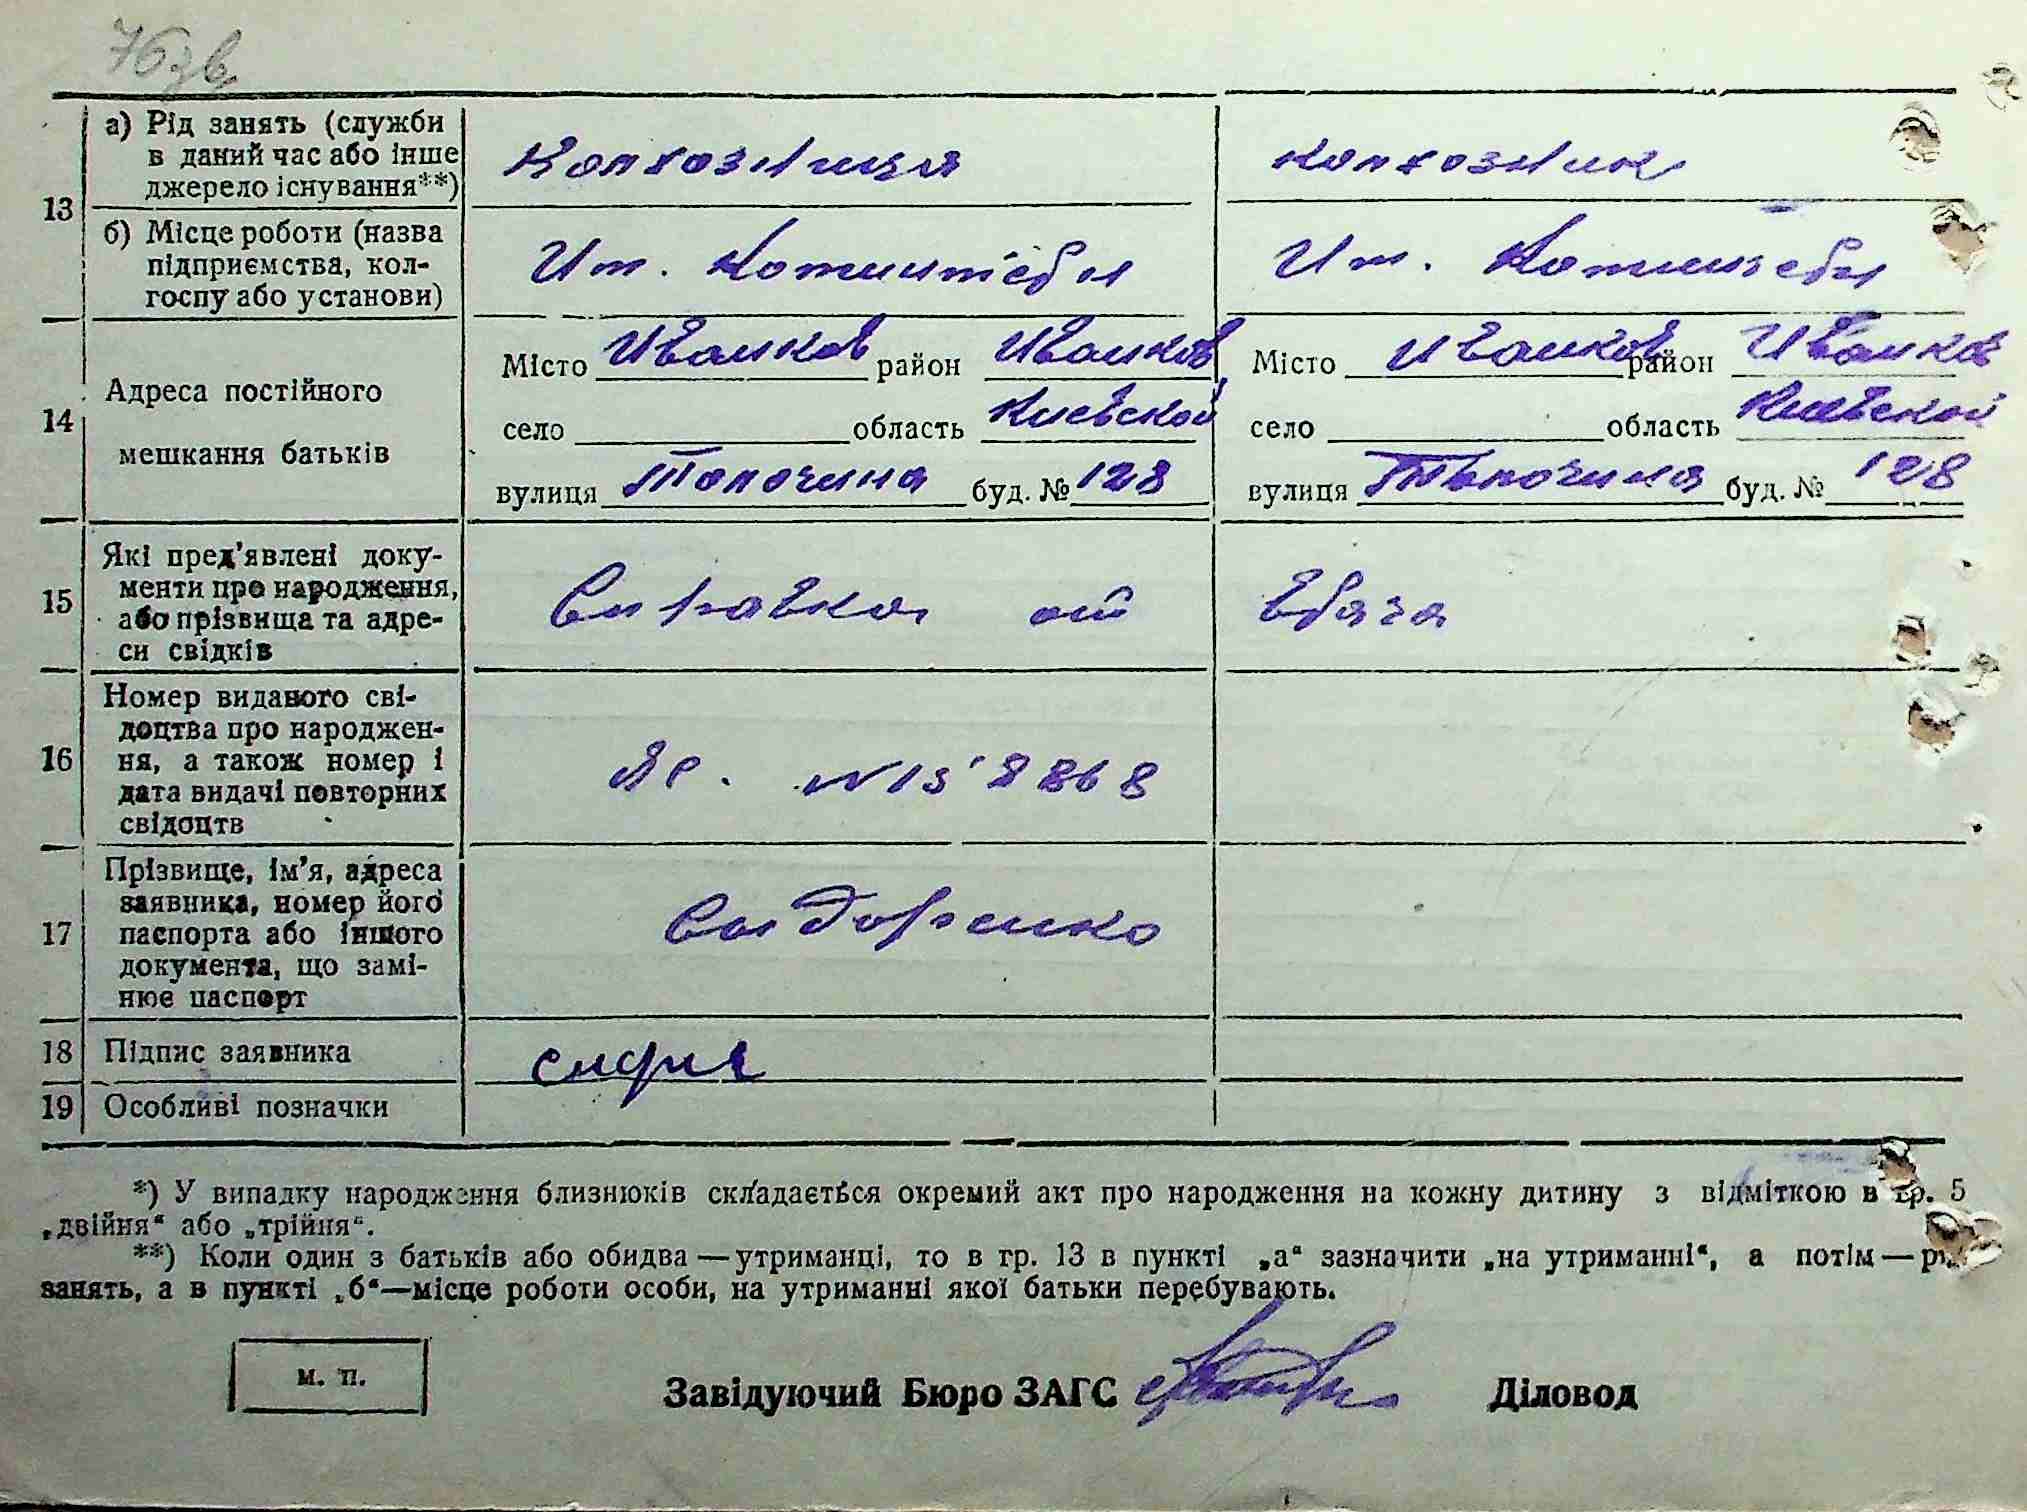 76зв
13
а) Рід занять (служби
в даний час або інше
джерело існування**)
Колхозница
колхозник
б) Місце роботи (назва
підприємства, кол-
госпу або установи)
Им. Коминтерна
Им. Коминтерна
14
Адреса постійного
мешкання батьків
Місто Иванков район Иванков
село область Киевской
вулиця буд. № 128
Місто Иванков район Иванков
село область Киевской
вулиця буд. № 128
15
Які пред'явлені доку-
менти про народження,
або прізвища та адре-
си свідків
Справка от
16
Номер виданого сві-
доцтва про народжен-
ня, а також номер і
дата видачі повторних
свідоцтв
17
Прізвище, ім'я, адреса
заявника, номер його
паспорта або іншого
документа, що замі-
нює паспорт
Сидоренко
18 Підпис заявника
19 Особливі позначки
*) У випадку народження близнюків складається окремий акт про народження на кожну дитину з відміткою в гр. 5
„двійня“ або „трійня“.
**) Коли один з батьків або обидва — утриманці, то в гр. 13 в пункті „а“ зазначити „на утриманні“, а потім — рід
занять, а в пункті „б“—місце роботи особи, на утриманні якої батьки перебувають.
м. п.
Завідуючий Бюро ЗАГС
Діловод